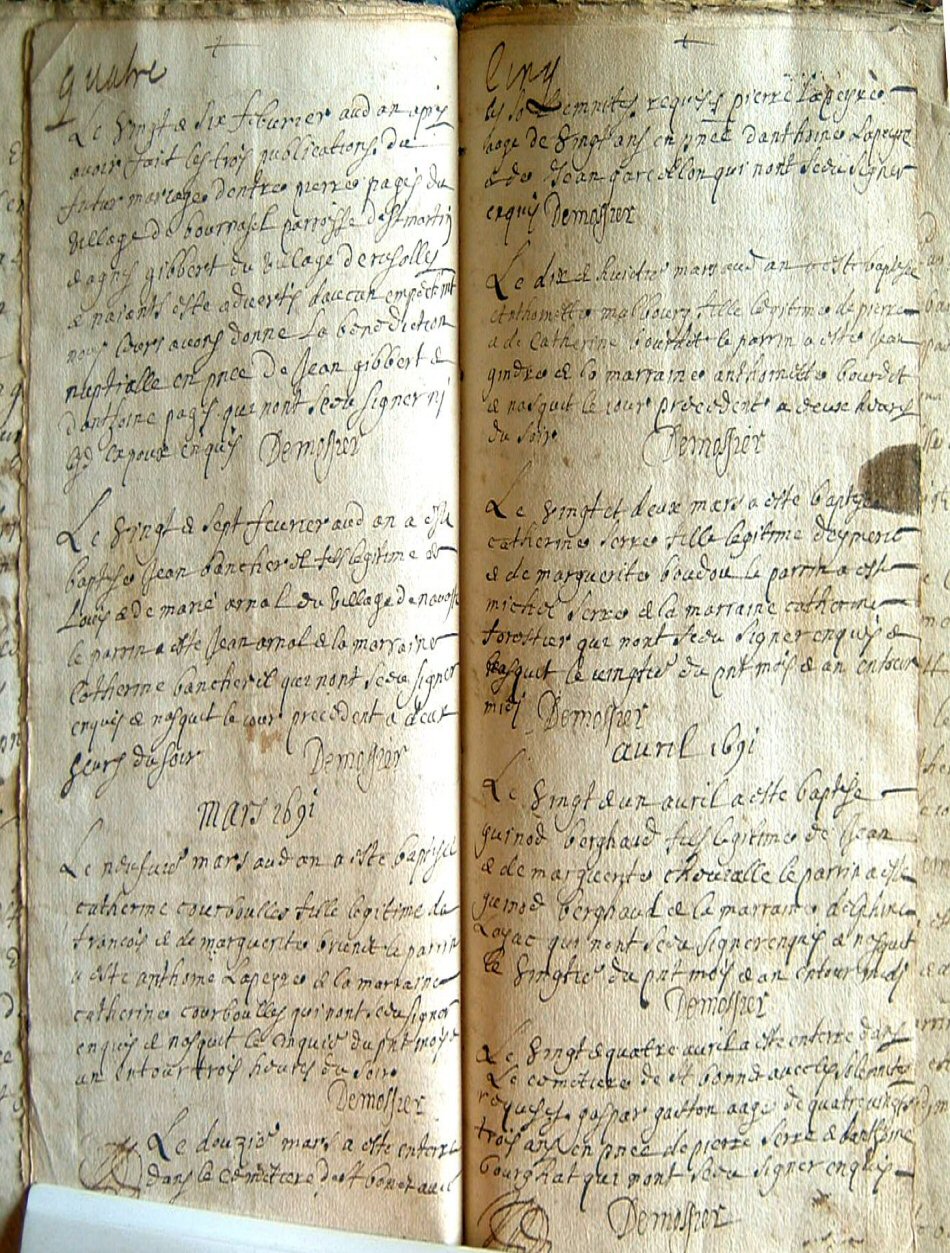 quatre
Le vingt & six febvrier aud an apres
avoir fait les trois publications du
futur mariage dentre pierre pagis du
village de bournasel parroisse de st martin
& agnes gibbert du village de
& naiants este advertis daucun empechemt
nous leurs avons donne La benediction
nuptialle en pnce de Jean gibbert &
danthoine pagis qui nont sceu signer ni
lesd expoux enquis Demossier
Le vingt & sept fevrier aud an a esté
baptise Jean bancherel fils legitime de
Louis & de marie arnal du village de
le parrin a este Jean arnal & la marraine
Catherine bancherel qui nont sceu signer
enquis & nasquit le jour precedent a deux
heurs du soir Demossier
mars 1691
Le neufvie mars aud an a este baptisee
catherine courboulles fille legitime du
francois & de marguerite le parrin
a este anthoine Lapeyre & la marraine
catherine courboulles qui nont sceu signer
enquis & nasquit le du pnt mois &
an entour trois heures du soir
Demossier
Le douzie mars a este enterre
dans le cemetiere de st bonnet avec
cinq
les solemnites requises pierre Lapeyre
aage de vingt ans en pnce danthoine Lapeyre
& de Jean garcelon qui nont sceu signer
enquis Demossier
Le dix & huictie mars aud an a este baptisee
Anthoinette malbourg fille legitime de pierre
& de Catherine bourdit le parrin a este Jean
gindre & la marraine anthoinette bourdit
& nasquit le jour precedent a deux heurs
du soir Demossier
Le vingt & deux mars a este baptisee
catherine serre fille legitime deymeric
& de marguerite boudou le parrin a este
michel serre & la marraine catherine
forestier qui nont sceu signer enquis &
nasquit le vingtie du pnt mois & an entour
midi Demossier
avril 1691
Le vingt & un avril a este baptise
guinod berghaud fils legitime de Jean
& de marguerite chovialle le parrin a este
guinod berghaud & la marraine delphine
Lajac qui nont sceu signer enquis & nasquit
le vingtie du pnt mois & an entour midi
Demossier
Le vingt & quatre avril a este enterre dans
Le cemetiere de st bonnet avec les solemnites
requises gaspar gaston aage de quatre vingts
trois ans en pnce de pierre serre & danthoine
bourghat qui nont sceu signer enquis
Demossier